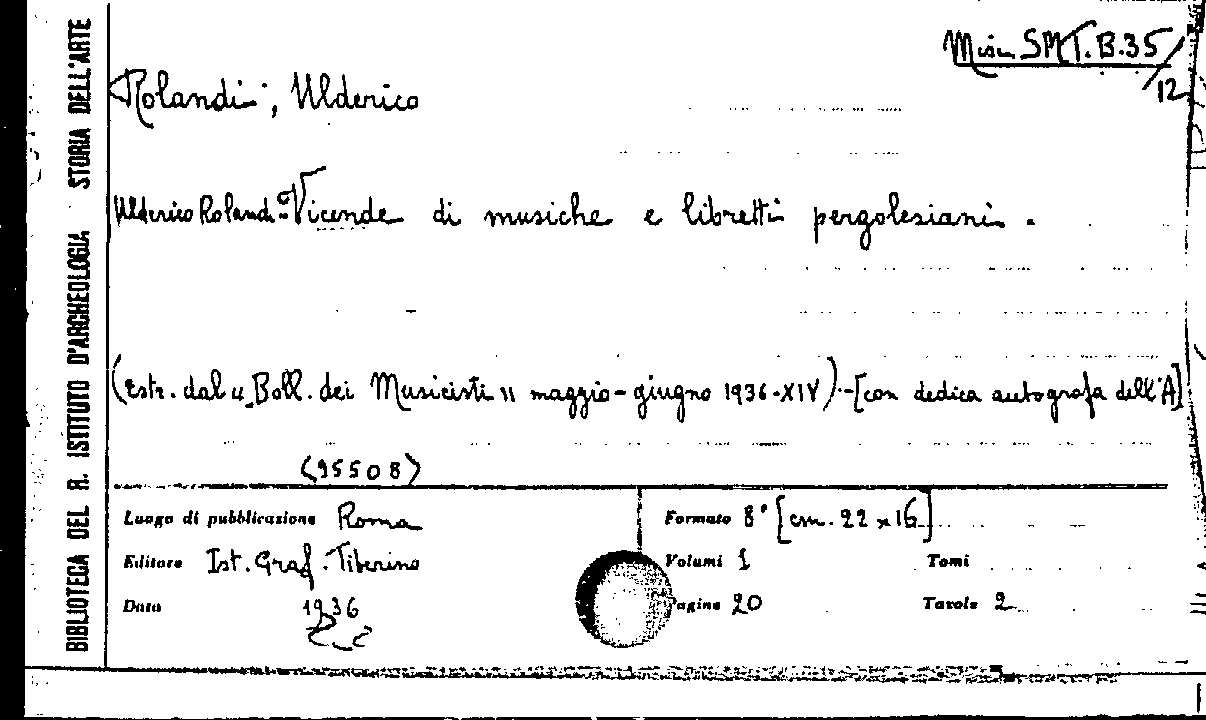 BIBLIOTECA DEL R. ISTITUTO D'ARCHEOLOGIA STORIA DELL'ARTE
Misc. SMT.B.35/12
Rolandi, Ulderico
Ulderico Rolandi - Vicende di musiche e libretti pergolesiani.
(Estr. dal "Boll. dei Musicisti" maggio-giugno 1936-XIV) - [con dedica autografa dell'A]
(95508)
Luogo di pubblicazione Roma
Formato 8° [cm. 22 x 16]
Editore Ist. Graf. Tiberino
Volumi 1 Tomi
Data 1936
Pagine 20 Tavole 2